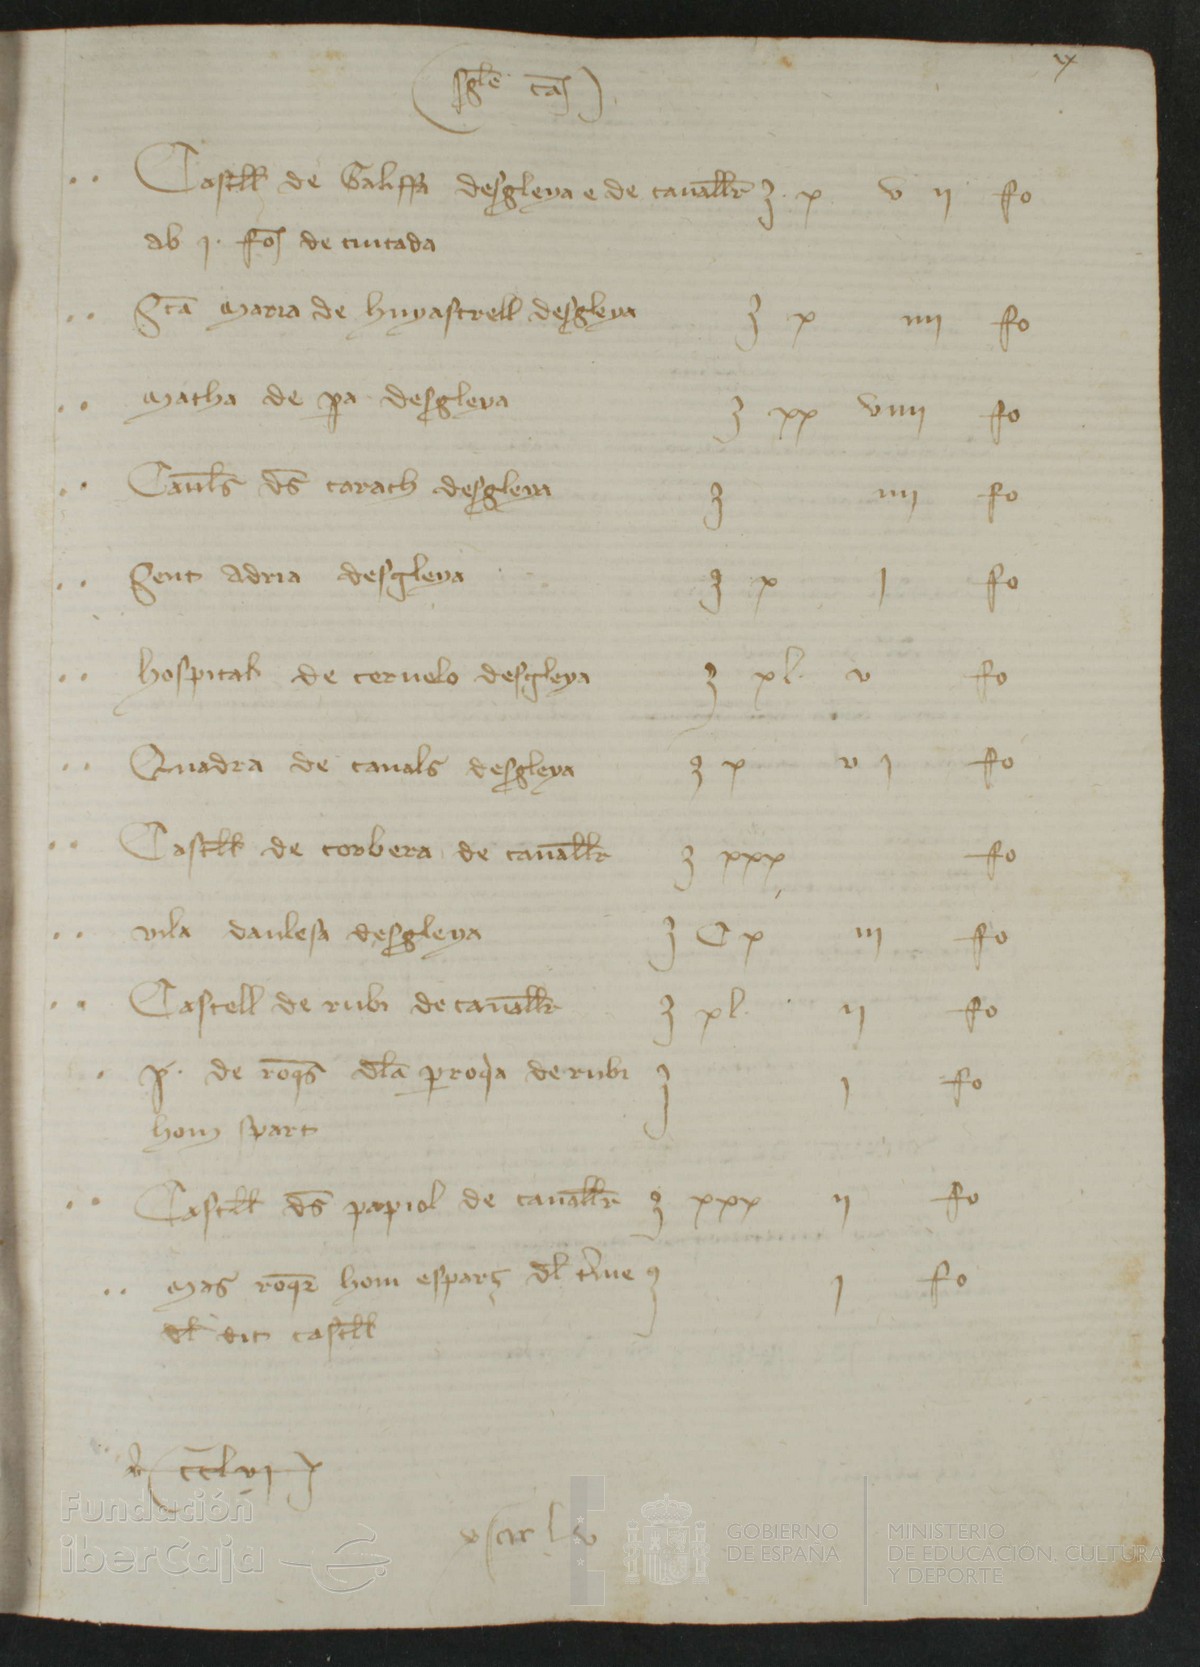 x
sgle cas
Castell de Galiffa desgleya e de cavaller ȝ x v ij fo
ab j. fos de ciutada
Scta Maria de huyastrell desgleya ȝ x iiij fo
Matha de pa desgleya ȝ xx viiij fo
Canals des carach desgleya ȝ iiij fo
Sent Adria desgleya ȝ x j fo
hospital de cervelo desgleya ȝ xl. v fo
Quadra de canals desgleya ȝ x v j fo
Castell de corbera de cavaller ȝ xxx fo
vila daulesa desgleya ȝ C x iij fo
Castell de rubi de cavaller ȝ xl. ij fo
p. de roqs dla proqia de rubi ȝ j fo
hom spart
Castell des papiol de cavaller ȝ xxx ij fo
Mas roqr hom esparç dl tme ȝ j fo
dl dit castell
cclvj
Fundación
iberCaja
GOBIERNO
DE ESPAÑA
MINISTERIO
DE EDUCACIÓN, CULTURA
Y DEPORTE